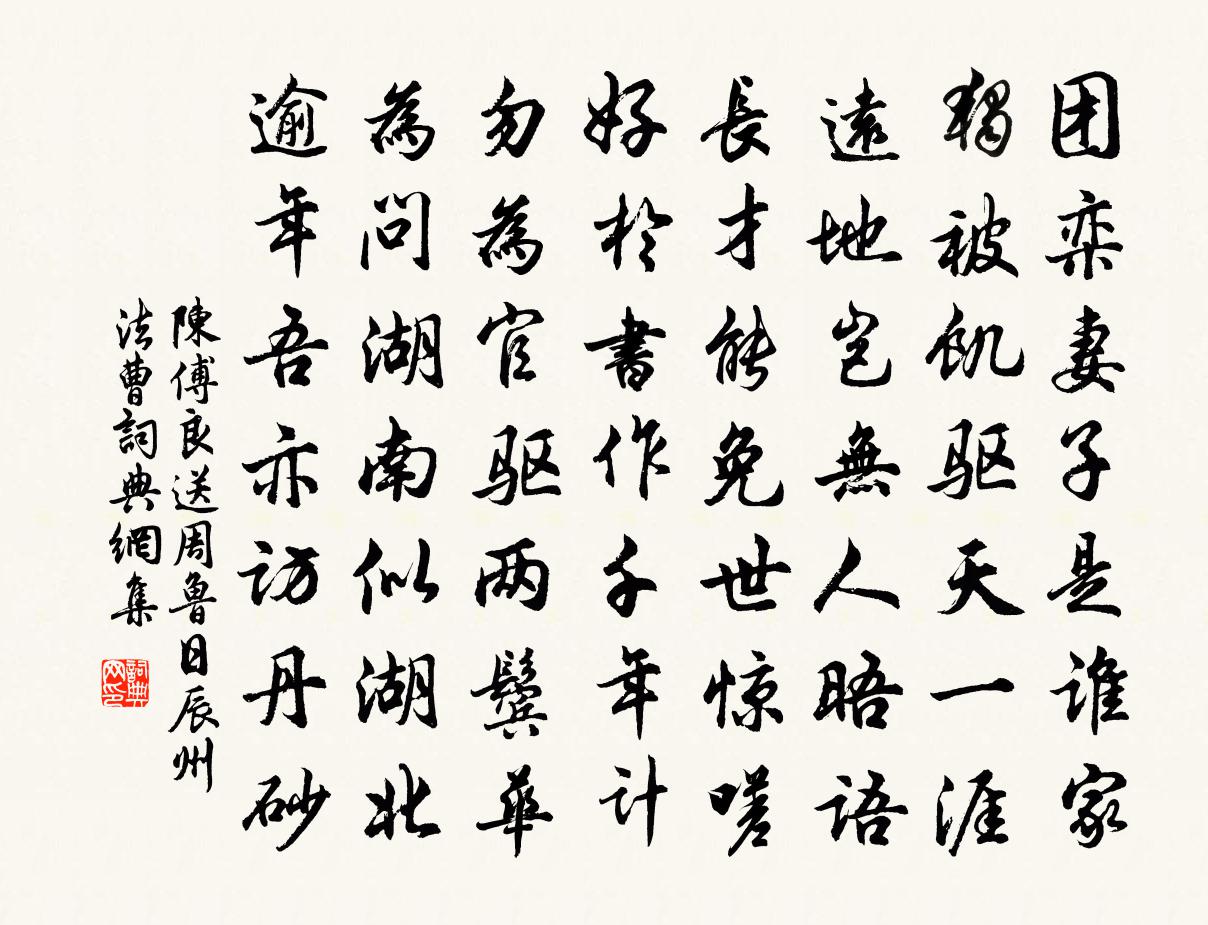 团栾妻子是谁家
獨被飢驱天一涯
遠地岂無人晤語
長才能免世惊嗟
好於書作千年计
勿為官驱两鬓華
為問湖南似湖北
逾年吾亦访丹砂
陳傅良送周魯日辰州
法曹詞典網集
詞典网印